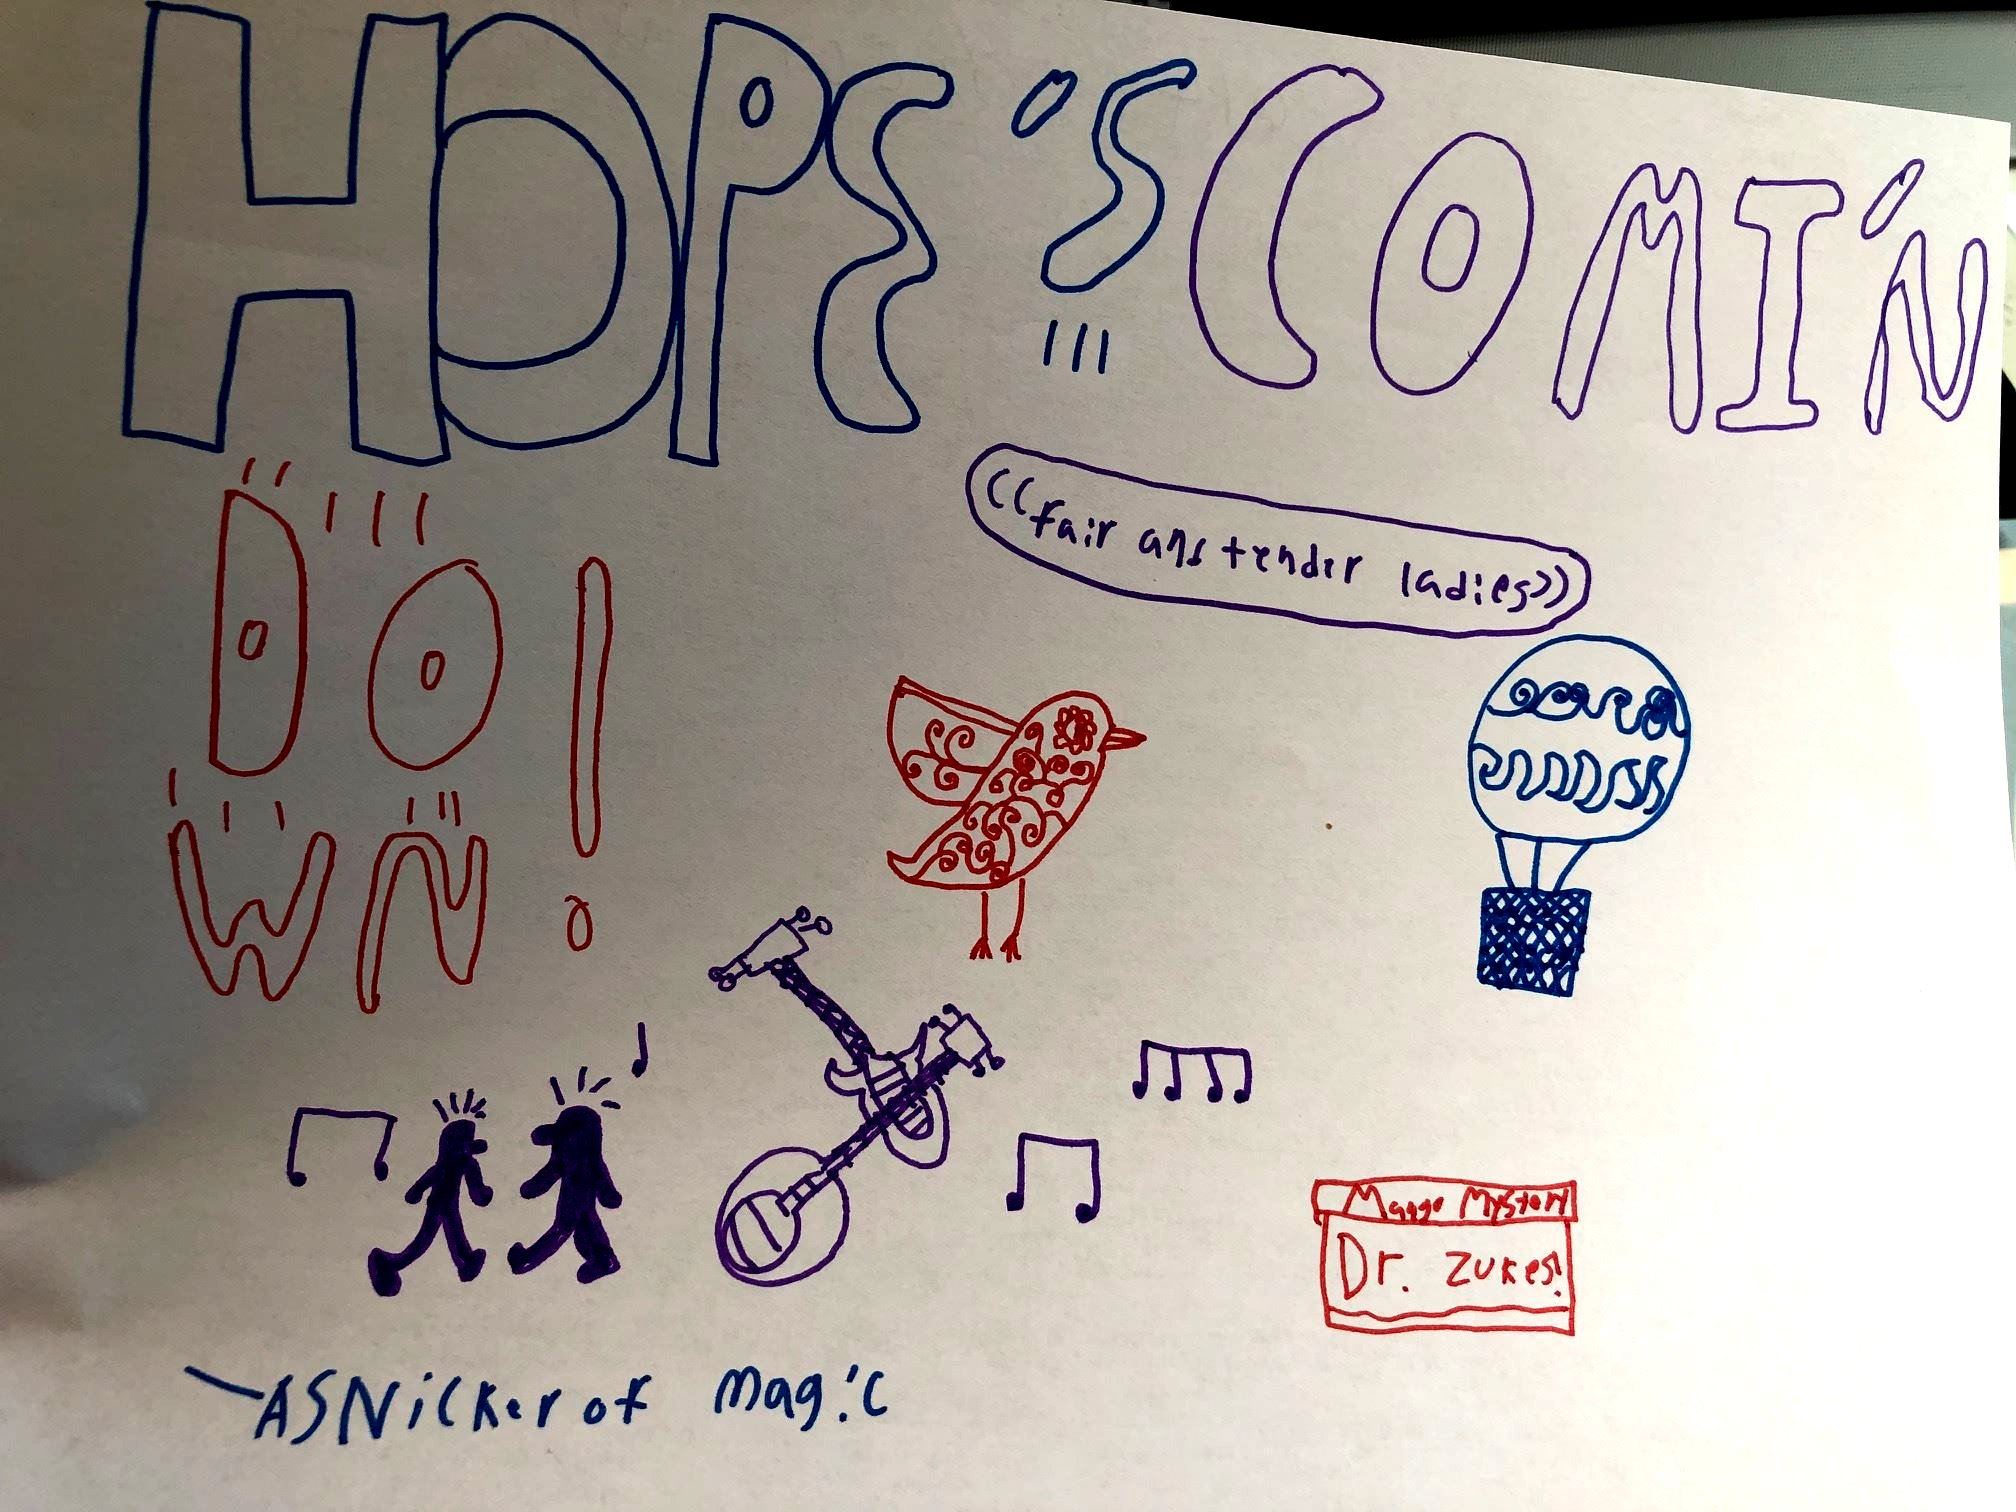 HOPE'S COMI'N
DO
WN!
((fair and tender ladies))
Mango Mystery
Dr. Zukes!
A SNicker of magic